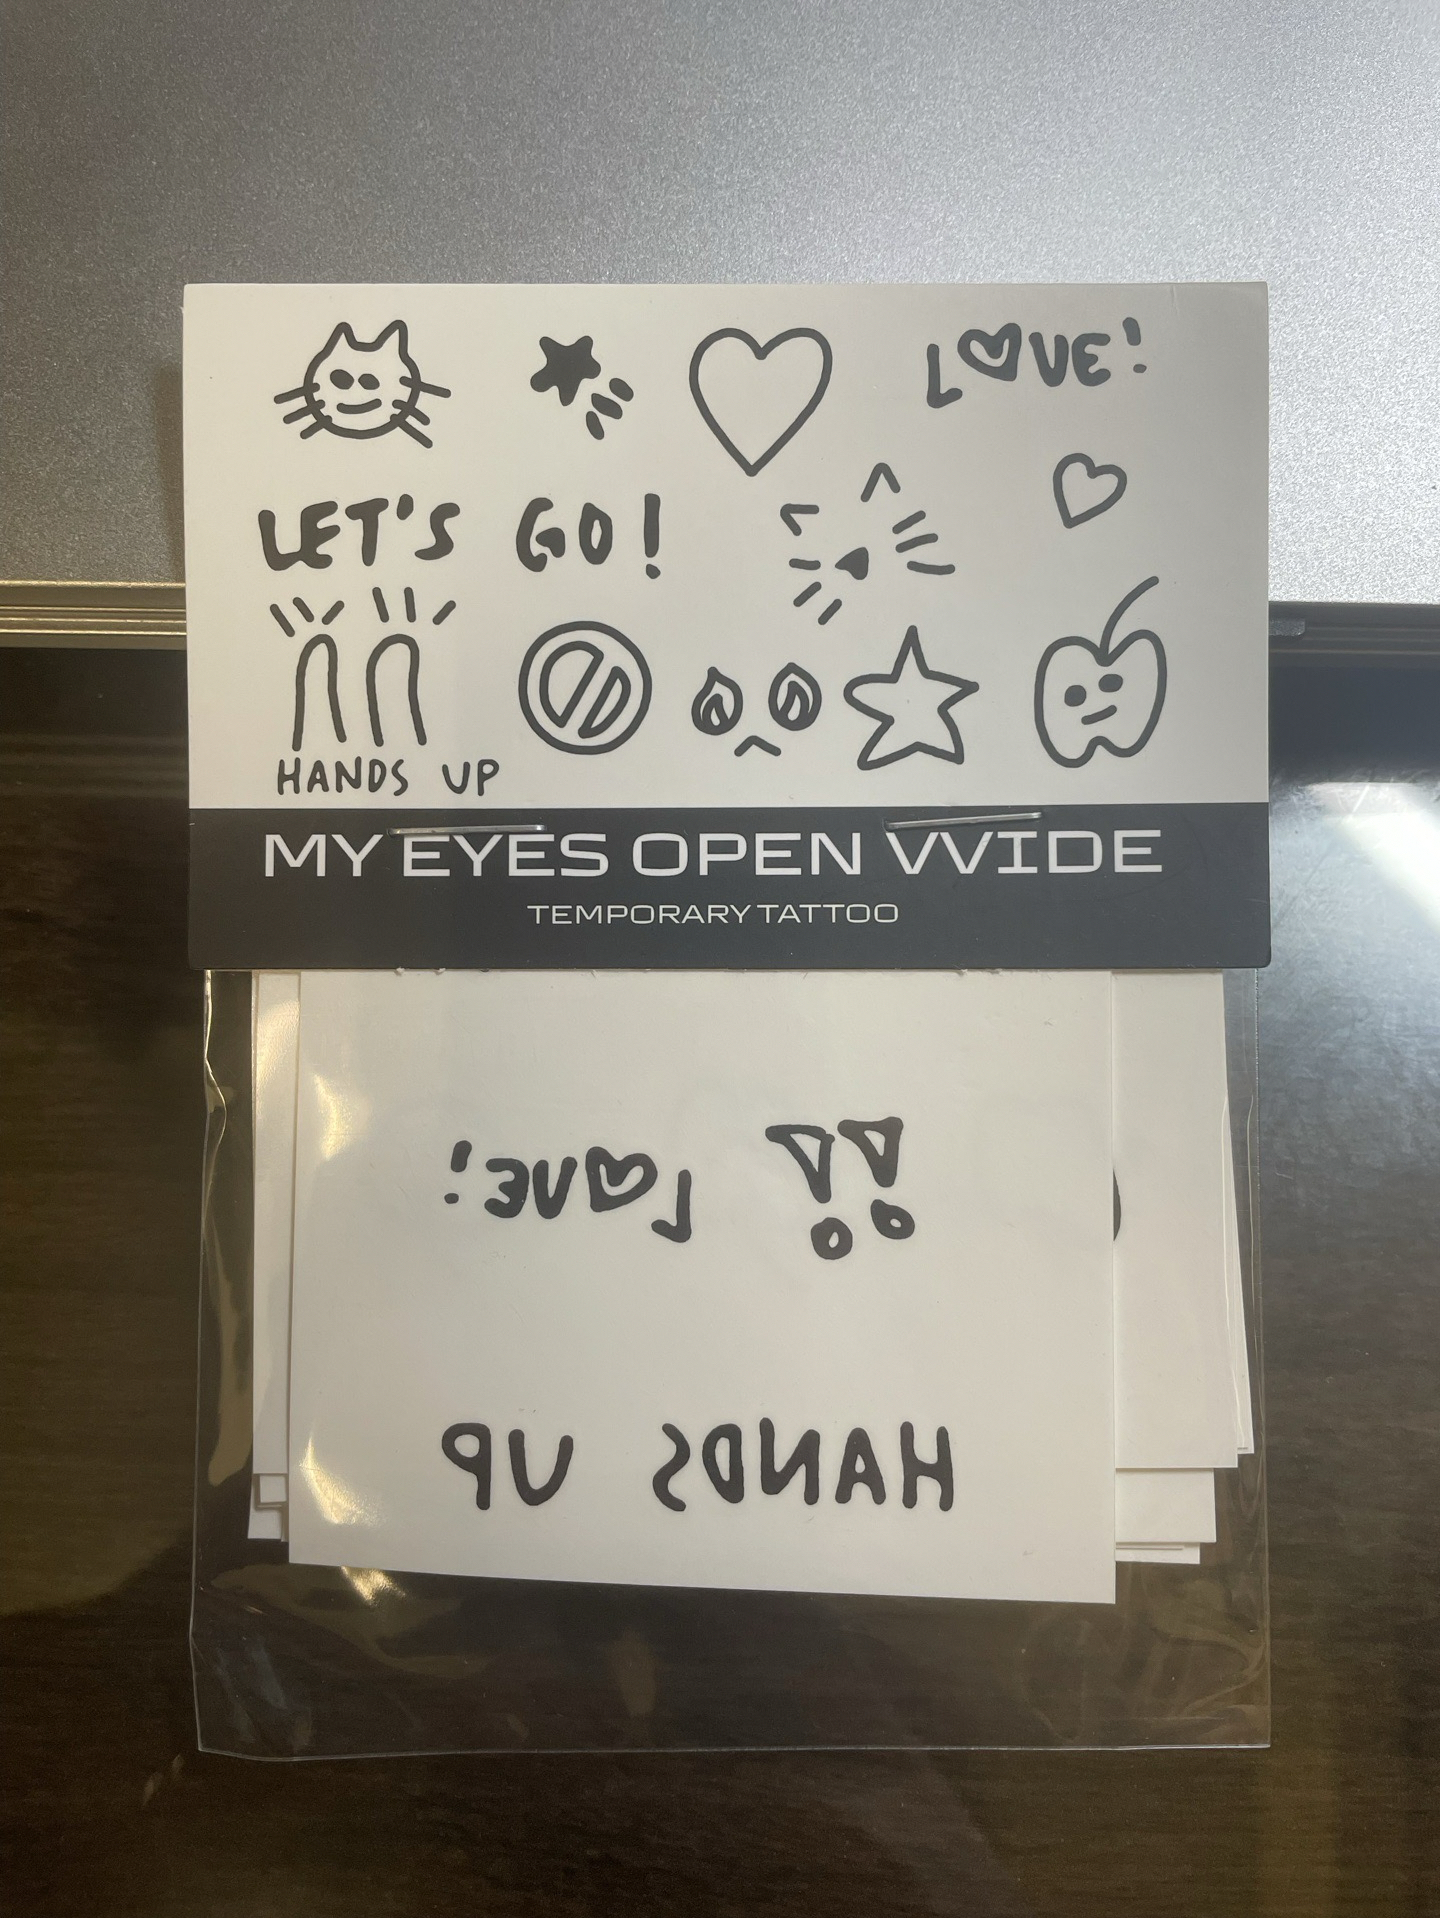 LOVE!
LET'S GO!
HANDS UP
MY EYES OPEN WIDE
TEMPORARY TATTOO
LOVE! !!
HANDS UP